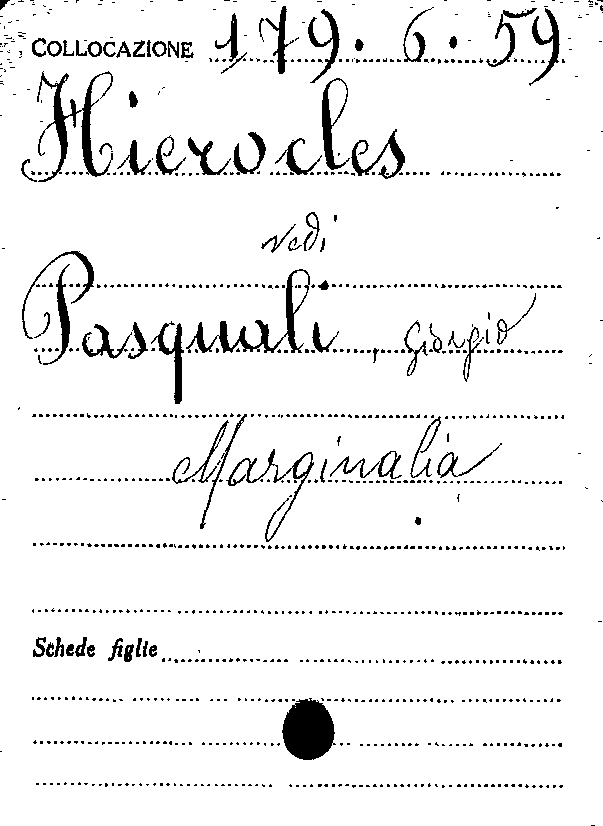 COLLOCAZIONE 179. 6. 59
Hierocles
vedi
Pasquali, Giorgio
Marginalia
Schede figlie